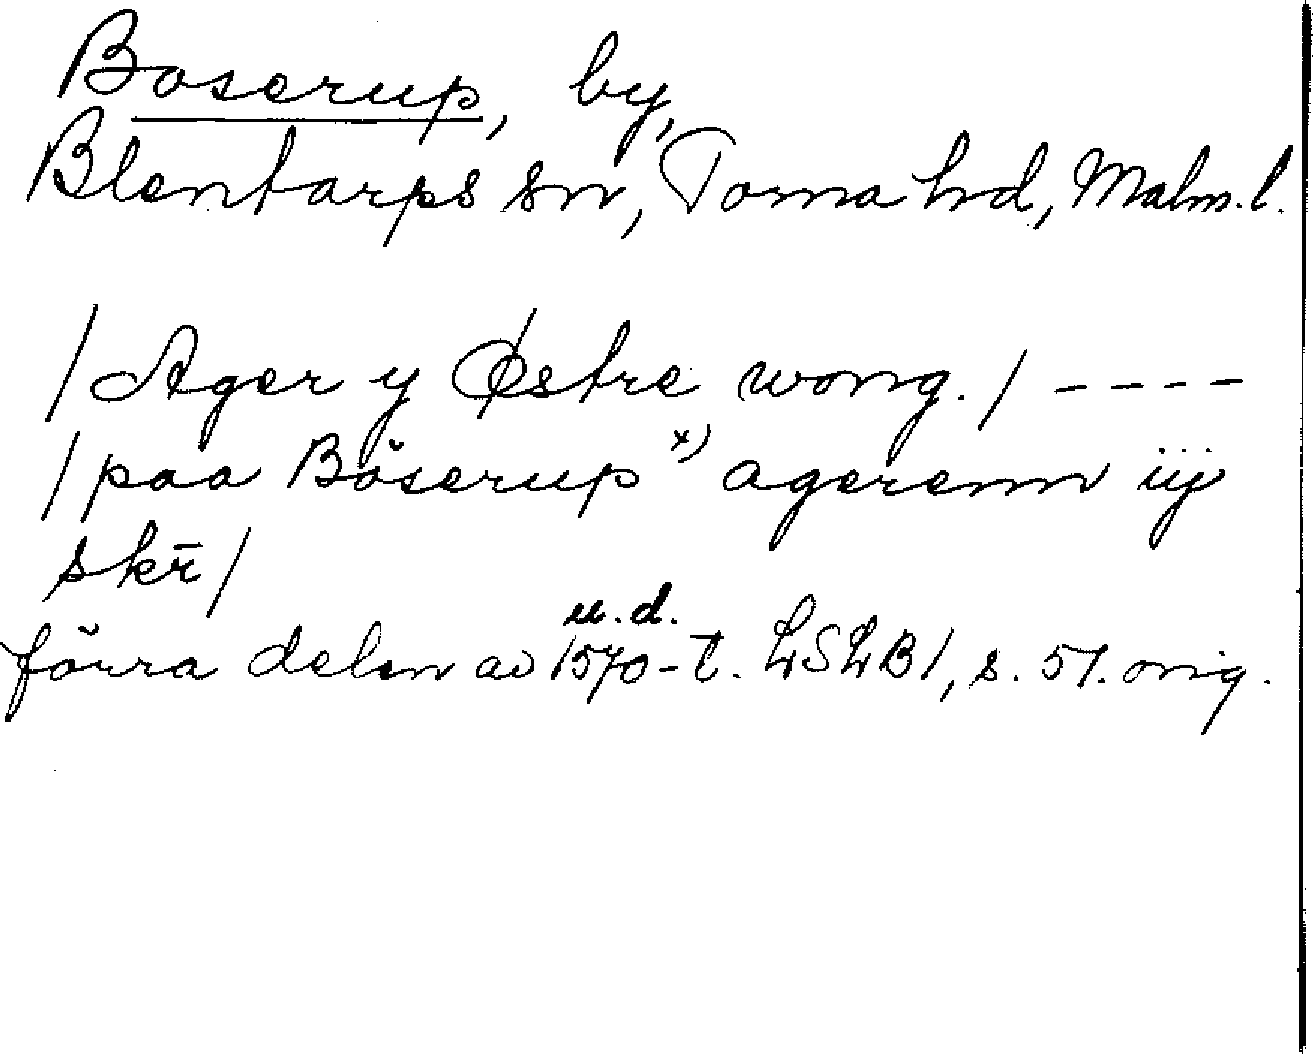 Boserup, by,
Blentarps sn, Torna hd, Malm.l.
/Ager y Østre wong./ ----
/paa Böserup x) agerenn iij
skr̄/
u.d.
förra delen av 1570-t. LSLB1, s. 51. orig.